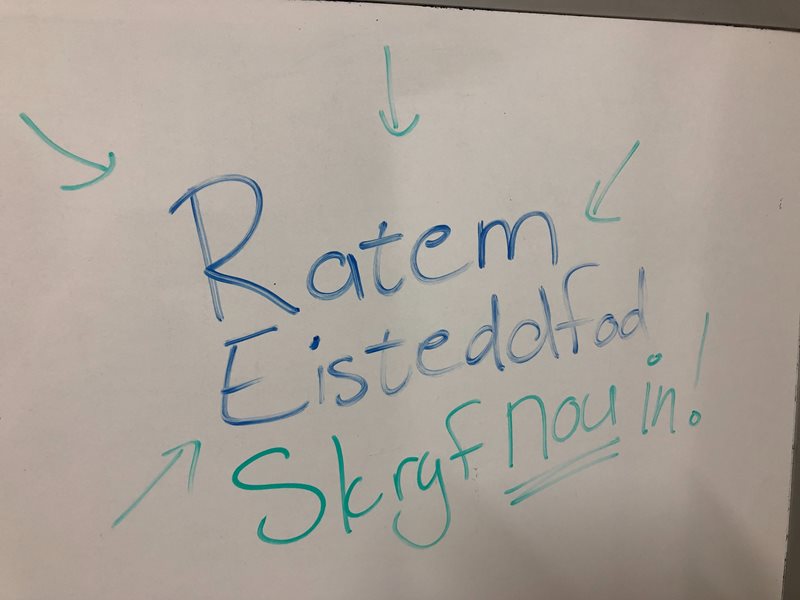 Ratem
Eisteddfod
Skryf nou in!